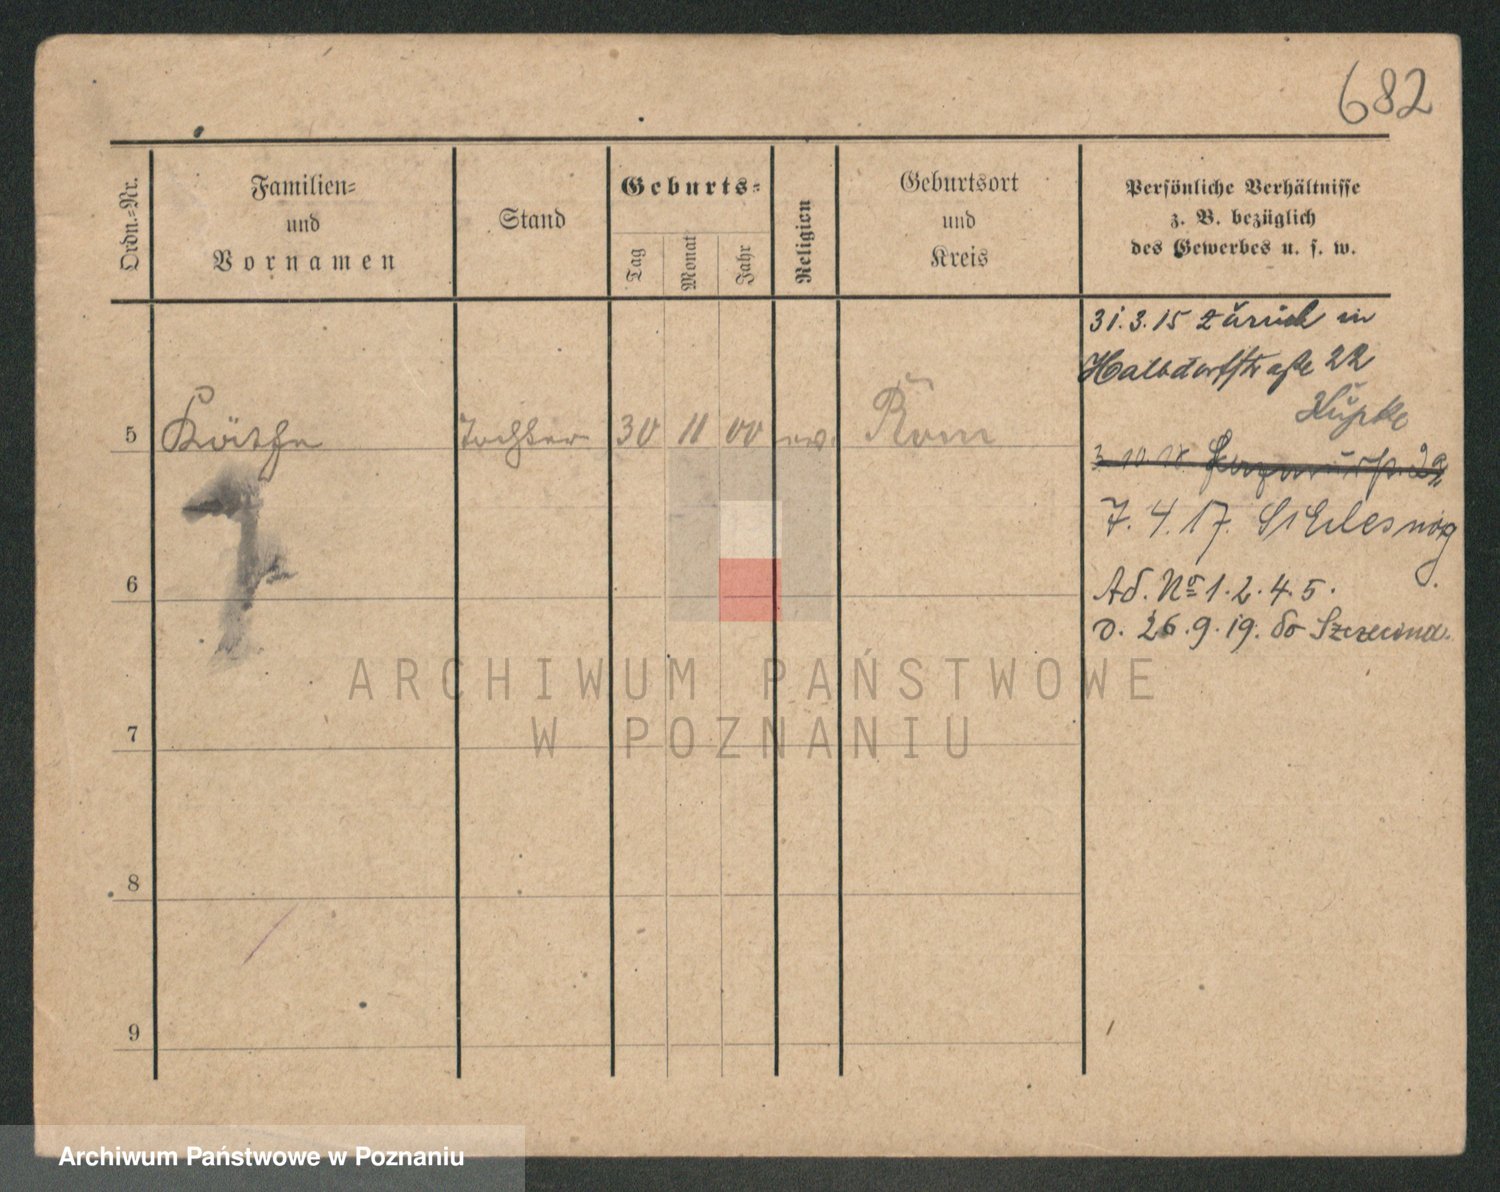 682
Ordn.=Nr.
Familien=
und
Vornamen
Stand
Geburts=
Tag
Monat
Jahr
Religion
Geburtsort
und
Kreis
Persönliche Verhältnisse
z. B. bezüglich
des Gewerbes u. s. w.
31.3.15 zurück in
Halbdorfstraße 22
5 Käthe Tochter 30 11 00 ev. Rom
7. 4. 17.
6
Ad. No 1. 2. 4. 5.
d. 26. 9. 19. do Szczecina
ARCHIWUM PAŃSTWOWE
W POZNANIU
7
8
9
Archiwum Państwowe w Poznaniu